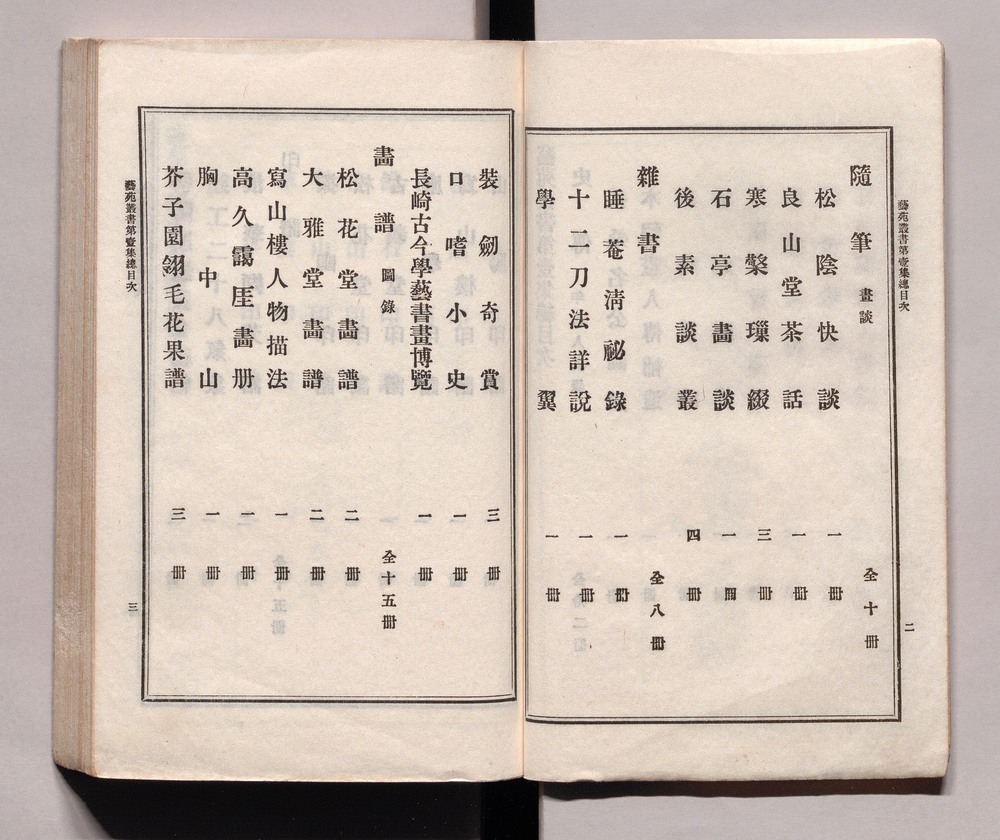 藝苑叢書第壹集總目次
二
隨筆 畫談 全十冊
松陰快談 一冊
良山堂茶話 一冊
寒檠璅綴 三冊
石亭畵談 一冊
後素談叢 四冊
雜書 全八冊
睡菴淸祕錄 一冊
十二刀法詳說 一冊
學翼 一冊
裝劒奇賞 三冊
口嗜小史 一冊
長崎古今學藝書畫博覽 一冊
畵譜 圖錄 全十五冊
松花堂畵譜 二冊
大雅堂畵譜 二冊
寫山樓人物描法 一冊
高久靄厓畵冊 一冊
胸中山 一冊
芥子園翎毛花果譜 三冊
藝苑叢書第壹集總目次
三